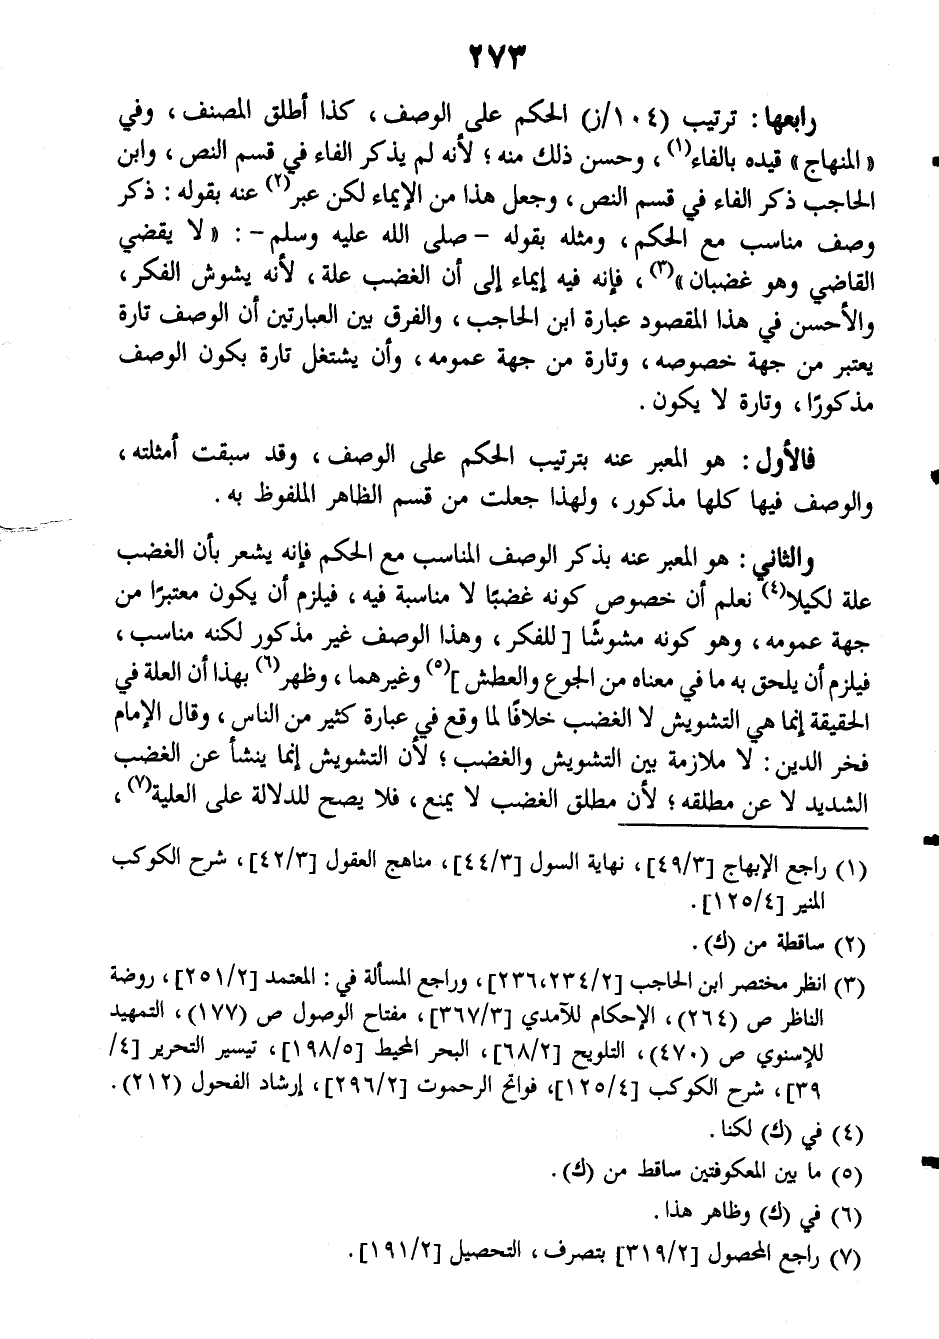 ٢٧٣
رابعها: ترتيب (١٠٤/ز) الحكم على الوصف، كذا أطلق المصنف، وفي
«المنهاج» قيده بالفاء(١)، وحسن ذلك منه؛ لأنه لم يذكر الفاء في قسم النص، وابن
الحاجب ذكر الفاء في قسم النص، وجعل هذا من الإيماء لكن عبر(٢) عنه بقوله: ذكر
وصف مناسب مع الحكم، ومثله بقوله -صلى الله عليه وسلم-: «لا يقضي
القاضي وهو غضبان»(٣)، فإنه فيه إيماء إلى أن الغضب علة، لأنه يشوش الفكر،
والأحسن في هذا المقصود عبارة ابن الحاجب، والفرق بين العبارتين أن الوصف تارة
يعتبر من جهة خصوصه، وتارة من جهة عمومه، وأن يشتغل تارة بكون الوصف
مذكورًا، وتارة لا يكون.
فالأول: هو المعبر عنه بترتيب الحكم على الوصف، وقد سبقت أمثلته،
والوصف فيها كلها مذكور، ولهذا جعلت من قسم الظاهر الملفوظ به.
والثاني: هو المعبر عنه بذكر الوصف المناسب مع الحكم فإنه يشعر بأن الغضب
علة لكيلا(٤) نعلم أن خصوص كونه غضبًا لا مناسبة فيه، فيلزم أن يكون معتبرًا من
جهة عمومه، وهو كونه مشوشًا [للفكر، وهذا الوصف غير مذكور لكنه مناسب،
فيلزم أن يلحق به ما في معناه من الجوع والعطش](٥) وغيرهما، وظهر(٦) بهذا أن العلة في
الحقيقة إنما هي التشويش لا الغضب خلافًا لما وقع في عبارة كثير من الناس، وقال الإمام
فخر الدين: لا ملازمة بين التشويش والغضب؛ لأن التشويش إنما ينشأ عن الغضب
الشديد لا عن مطلقه؛ لأن مطلق الغضب لا يمنع، فلا يصح للدلالة على العلية(٧)،
(١) راجع الإبهاج [٤٩/٣]، نهاية السول [٤٤/٣]، مناهج العقول [٤٢/٣]، شرح الكوكب
المنير [١٢٥/٤].
(٢) ساقطة من (ك).
(٣) انظر مختصر ابن الحاجب [٢٣٦،٢٣٤/٢]، وراجع المسألة في: المعتمد [٢٥١/٢]، روضة
الناظر ص (٢٦٤)، الإحكام للآمدي [٣٦٧/٣]، مفتاح الوصول ص (١٧٧)، التمهيد
للإسنوي ص (٤٧٠)، التلويح [٦٨/٢]، البحر المحيط [١٩٨/٥]، تيسير التحرير [٤/
٣٩]، شرح الكوكب [١٢٥/٤]، فواتح الرحموت [٢٩٦/٢]، إرشاد الفحول (٢١٢).
(٤) في (ك) لكنا.
(٥) ما بين المعكوفتين ساقط من (ك).
(٦) في (ك) وظاهر هذا.
(٧) راجع المحصول [٣١٩/٢] بتصرف، التحصيل [١٩١/٢].